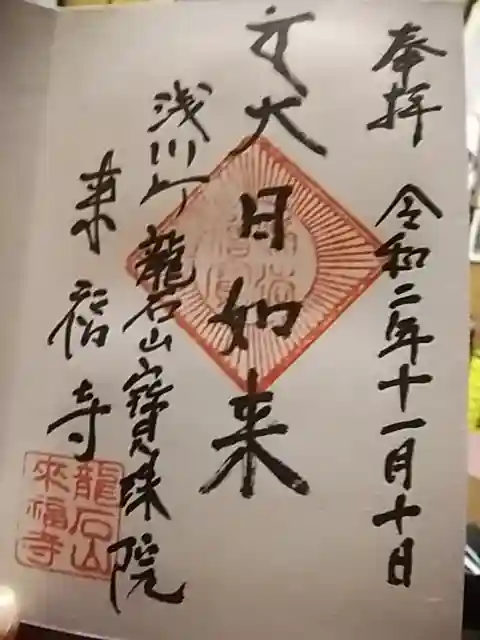 奉拝
令和二年十一月十日
大日如来
浅川町
龍石山寶珠院
来福寺
龍石山
來福寺